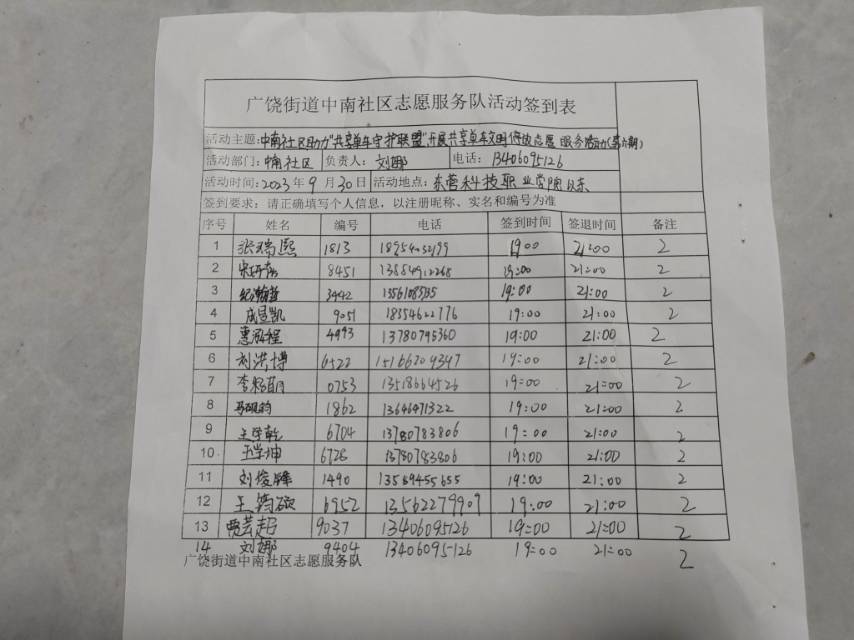 广饶街道中南社区志愿服务队活动签到表
活动主题:中南社区助力"共享单车守护联盟"开展共享单车文明停放志愿服务活动(第六期)
活动部门:中南社区 负责人:刘娜 电话:13406095126
活动时间:2023年9月30日 活动地点:东营科技职业学院以东
签到要求:请正确填写个人信息,以注册昵称、实名和编号为准
序号 姓名 编号 电话 签到时间 签退时间 备注
1 张瑞熙 1813 19:00 21:00 2
2 8451 13884912268 19:00 21:00 2
3 3442 19:00 21:00 2
4 成昱凯 9051 18354622776 19:00 21:00 2
5 惠泓程 4993 13780795360 19:00 21:00 2
6 刘洪博 6522 15166209347 19:00 21:00 2
7 0753 13518664526 19:00 21:00 2
8 马砚钧 1862 13646471322 19:00 21:00 2
9 王学乾 6704 13780783806 19:00 21:00 2
10 王学坤 6728 13780783806 19:00 21:00 2
11 刘俊锋 1490 13589455655 19:00 21:00 2
12 王筠硕 6952 13562279909 19:00 21:00 2
13 贾芸起 9037 13406095126 19:00 21:00 2
14 刘娜 9404 13406095126 19:00 21:00 2
广饶街道中南社区志愿服务队